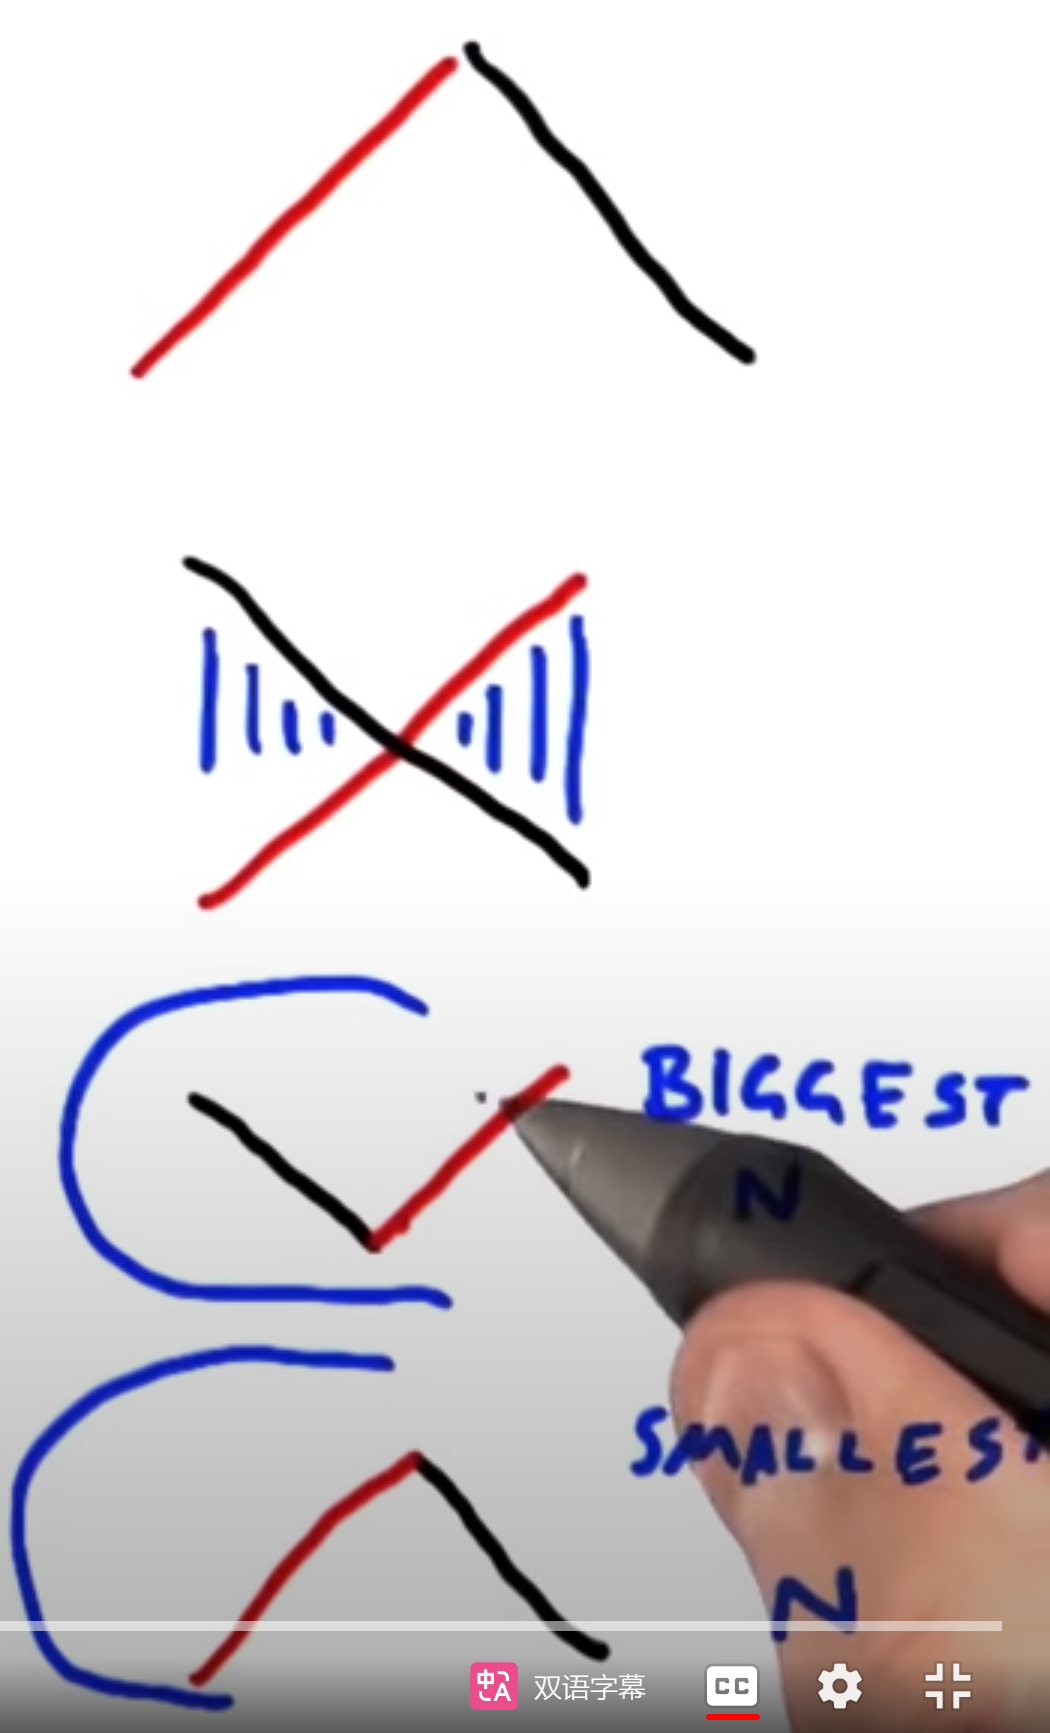 BIGGEST
N
SMALLEST
N
中A 双语字幕 CC